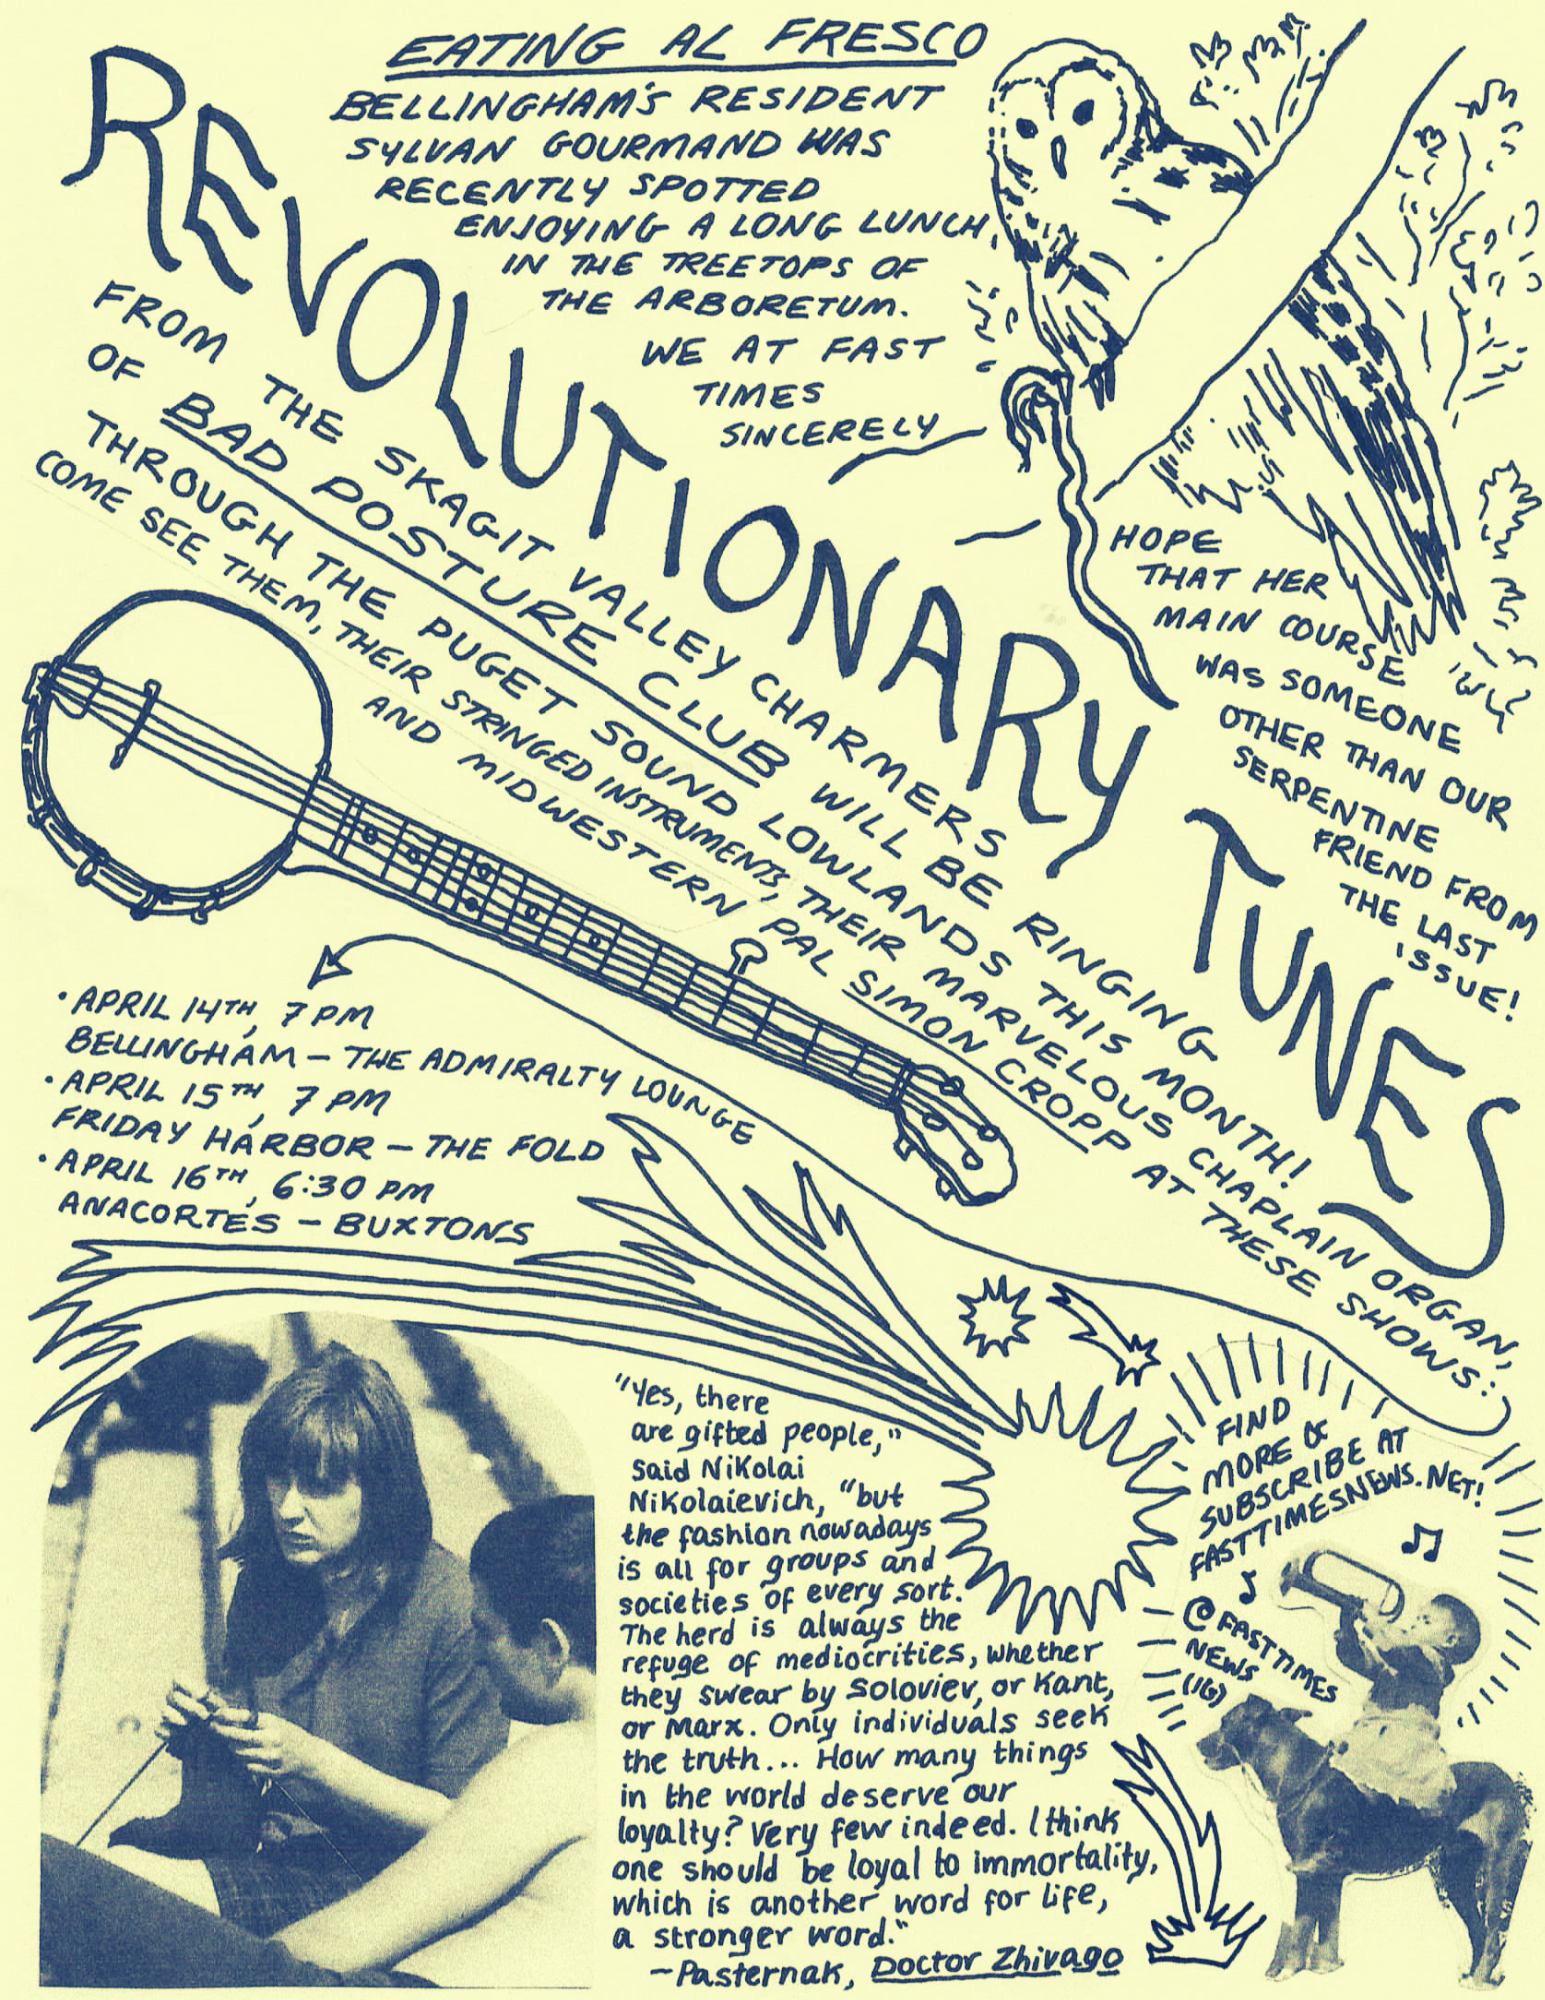 EATING AL FRESCO
BELLINGHAM'S RESIDENT
SYLVAN GOURMAND WAS
RECENTLY SPOTTED
ENJOYING A LONG LUNCH,
IN THE TREETOPS OF
THE ARBORETUM.
WE AT FAST
TIMES
SINCERELY
HOPE
THAT HER
MAIN COURSE
WAS SOMEONE
OTHER THAN OUR
SERPENTINE
FRIEND FROM
THE LAST
ISSUE!
REVOLUTIONARY TUNES
FROM THE SKAGIT VALLEY CHARMERS
OF BAD POSTURE CLUB WILL BE RINGING
THROUGH THE PUGET SOUND LOWLANDS THIS MONTH!
COME SEE THEM, THEIR STRINGED INSTRUMENTS, THEIR MARVELOUS CHAPLAIN ORGAN,
AND MIDWESTERN PAL SIMON CROPP AT THESE SHOWS:
• APRIL 14TH, 7 PM
BELLINGHAM – THE ADMIRALTY LOUNGE
• APRIL 15TH, 7 PM
FRIDAY HARBOR – THE FOLD
• APRIL 16TH, 6:30 PM
ANACORTES – BUXTONS
"Yes, there
are gifted people,"
said Nikolai
Nikolaievich, "but
the fashion nowadays
is all for groups and
societies of every sort.
The herd is always the
refuge of mediocrities, whether
they swear by Soloviev, or Kant,
or Marx. Only individuals seek
the truth... How many things
in the world deserve our
loyalty? Very few indeed. I think
one should be loyal to immortality,
which is another word for life,
a stronger word."
~Pasternak, Doctor Zhivago
FIND
MORE &
SUBSCRIBE AT
FASTTIMESNEWS.NET!
@FASTTIMES
NEWS
(IG)